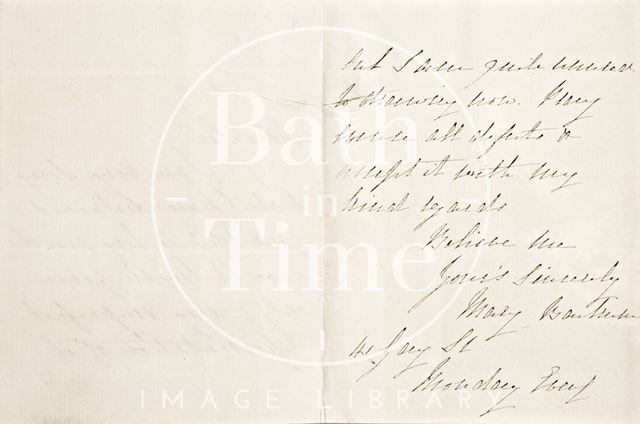 but I am quite unused
to drawing now. Pray
excuse all defects &
accept it with my
kind regards
Believe me
Yours Sincerely
Mary
41 Gay St
Monday Eveg
Bath
in
Time
IMAGE LIBRARY